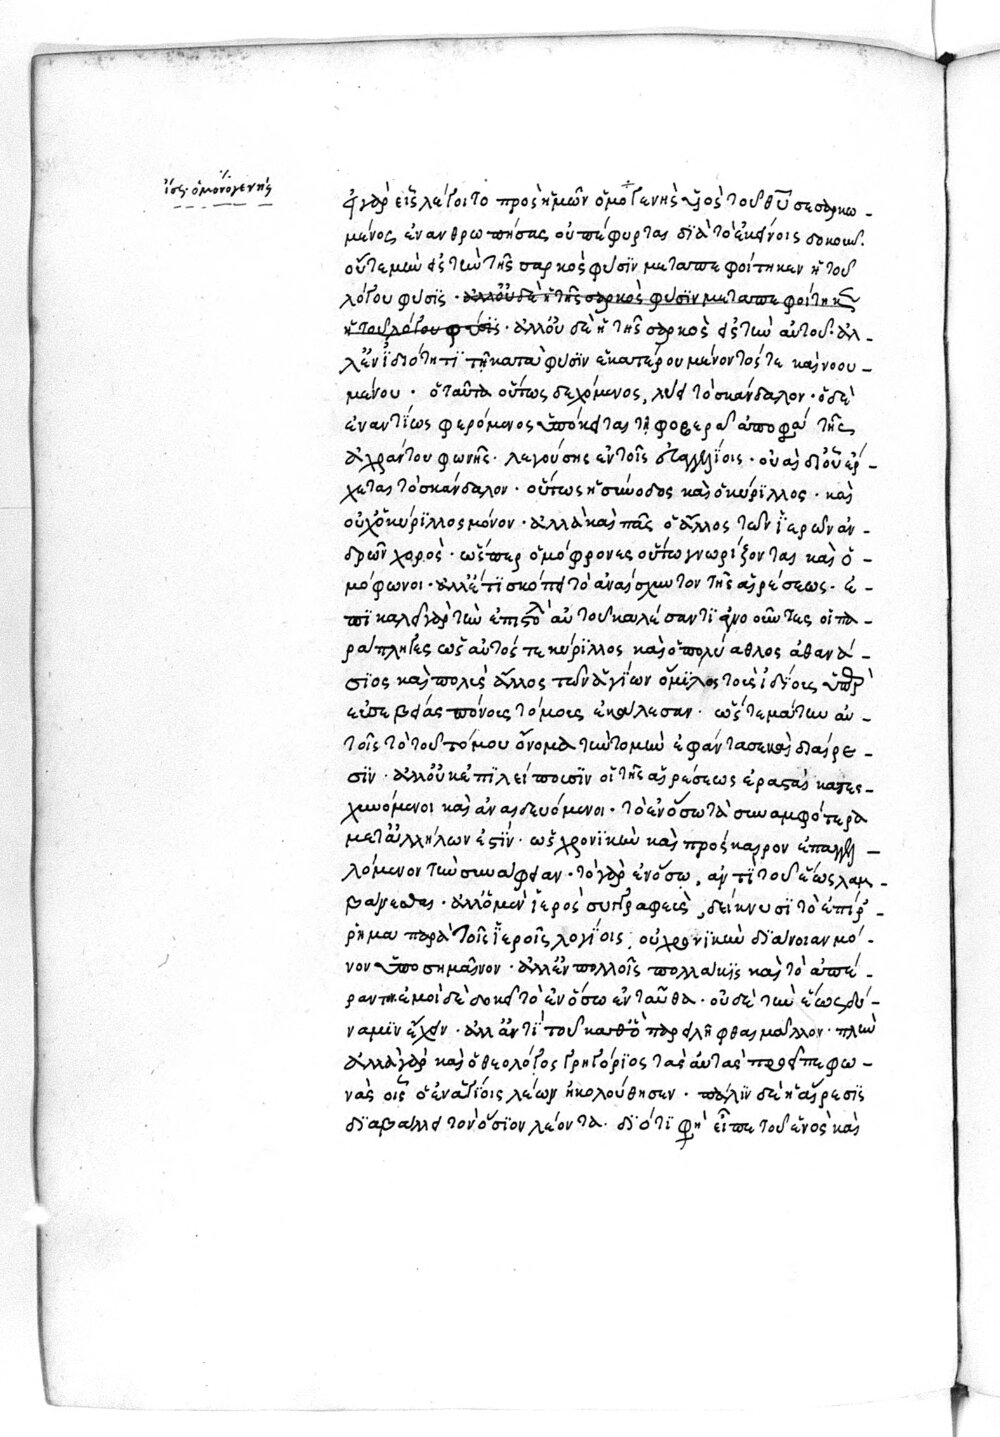 ἴσως ὁ μονογενὴς
εἰ γὰρ εἷς λέγοιτο πρὸς ἡμῶν ὁ μογενὴς υἱὸς τοῦ θυ σεσαρκω-
μένος, ἐνανθρωπήσας, οὐ πέφυρται διὰ τὸ ἐκείνοις δοκοῦν.
οὔτε μὴν εἰς τὴν τῆς σαρκὸς φύσιν μεταπεφοίτηκεν ἡ τοῦ
λόγου φύσις. ἀλλ' οὐδὲ ἡ τῆς σαρκὸς φύσιν μεταπεφοίτηκεν
ἡ τοῦ λόγου φύσις. ἀλλ' οὐδὲ ἡ τῆς σαρκὸς εἰς τὴν αὐτοῦ. ἀλ-
λ' ἐν ἰδιότητι τῇ κατὰ φύσιν ἑκατέρου μένοντός τε καὶ νοου-
μένου. ὁ ταῦτα οὕτως δεχόμενος, λύει τὸ σκάνδαλον. ὁ δὲ
ἐναντίως φερόμενος ὑπόκειται τῇ φοβερᾷ ἀποφάσει τῆς
ἀχράντου φωνῆς. λεγούσης ἐν τοῖς εὐαγγελίοις. οὐαὶ δι' οὗ ἔρ-
χεται τὸ σκάνδαλον. οὕτως ἡ σύνοδος καὶ ὁ κύριλλος. καὶ
οὐχ' ὁ κύριλλος μόνον. ἀλλὰ καὶ πᾶς ὁ ἄλλος τῶν ἱερῶν ἀν-
δρῶν χορός. ὥσπερ ὁμόφρονες οὕτω γνωρίζονται καὶ ὁ-
μόφωνοι. ἀλλ' ἔτι σκόπει τὸ ἀναίσχυντον τῆς αἱρέσεως. ἐ-
πικαλεῖ γὰρ τὴν ἐπιστολ αὐτοῦ καλέσαντι ἀγνοοῦντες οἱ πα-
ραπλῆγες ὡς αὐτός τε κύριλλος καὶ ὁ πολύαθλος ἀθανά-
σιος καὶ πολὺς ἄλλος τῶν ἁγίων ὅμιλος τοὺς ἰδίοις ὑπὲρ
εὐσεβείας πόνοις τόμοις ἐκάλεσαν. ὥστε μάτην αὐ-
τοῖς τὸ τοῦ τόμου ὄνομα τὴν τομὴν ἐφάντασε καὶ διαίρε-
σιν. ἀλλ' οὐκ ἐπιλείπουσιν οἱ τῆς αἱρέσεως ἐρασταὶ καταις-
χυνόμενοι καὶ ἀναιδευόμενοι. τὸ ἐν ὅσω τὰ συναμφότερα
μετ' ἀλλήλων ἐστίν. ὡς χρονικὴν καὶ πρόσκαιρον ἐπαγγελ-
λόμενον τὴν συνάφειαν. τὸ γὰρ ἐν ὅσω, ἀντὶ τοῦ ἕως λαμ-
βάνεσθαι. ἀλλ' ὁ μὲν ἱερὸς συγγραφεὺς, δείκνυσι τὸ ἐπίρ-
ρημα παρὰ τοῖς ἱεροῖς λογίοις, οὐ χρονικὴν διάνοιαν μό-
νον ὑποσημαῖνον. ἀλλ' ἐν πολλοῖς πολλάκις καὶ τὸ ἀπέ-
ραντον ἐμοὶ δὲ δοκεῖ τὸ ἐν ὅσω ἐνταῦθα. οὐδὲ τὴν ἕως δύ-
ναμιν ἔχειν. ἀλλ' ἀντὶ τοῦ καθὸ παρειλῆφθαι μᾶλλον. πλὴν
ἀλλὰ γὰρ καὶ ὁ θεολόγος γρηγόριος τὰς αὐτὰς παρεῖπε φω-
νὰς οἷς ὁ ἐν ἁγίοις λέων ἠκολούθησεν. πάλιν δὲ ἡ αἵρεσις
διαβάλλει τὸν ὅσιον λέοντα. διότι φησὶ εἶπε τοῦ ἑνὸς καὶ